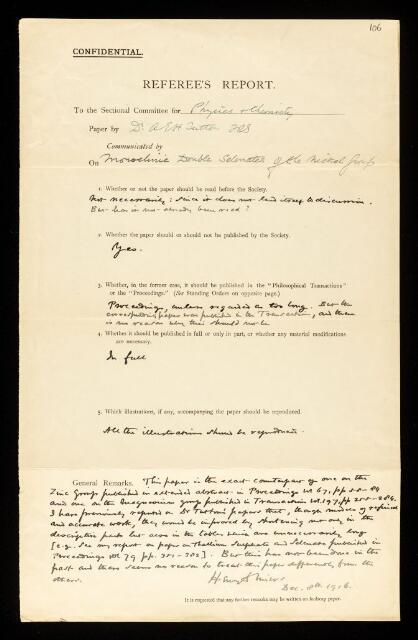 106
CONFIDENTIAL.
REFEREE'S REPORT.
To the Sectional Committee for Physics & Chemistry
Paper by Dr. A E H Tutton FRS
Communicated by
On Monoclinic Double Selenates of the Nickel Group
1. Whether or not the paper should be read before the Society.
Not necessarily; since it does not lend itself to discussion.
But has it not already been read?
2. Whether the paper should or should not be published by the Society.
Yes.
3. Whether, in the former case, it should be published in the "Philosophical Transactions"
or the "Proceedings." (See Standing Orders on opposite page.)
Proceedings, unless regarded as too long. But the
corresponding paper was published in the Transactions, and there
is no reason why this should not be
4. Whether it should be published in full or only in part, or whether any material modifications
are necessary.
In full
5. Which illustrations, if any, accompanying the paper should be reproduced.
All the illustrations should be reproduced.
General Remarks. This paper is the exact counterpart of one on the
Zinc Group published in extended abstract in Proceedings vol 67, pp 58-84
and one on the Magnesium group published in Transactions vol. 197, pp 255-284.
I have previously reported on Dr Tutton's papers that, though models of refined
and accurate work, they would be improved by shortening not only in the
descriptive parts but also in the tables which are unnecessarily long
[e.g. see my report on paper on Thallium Sulphate and Selenate published in
Proceedings vol 79 pp. 351-382]. But this has not been done in the
past and there seems no reason to treat this paper differently from the
others.
Henry A Miers
Dec. 8th 1916.
It is requested that any further remarks may be written on foolscap paper.